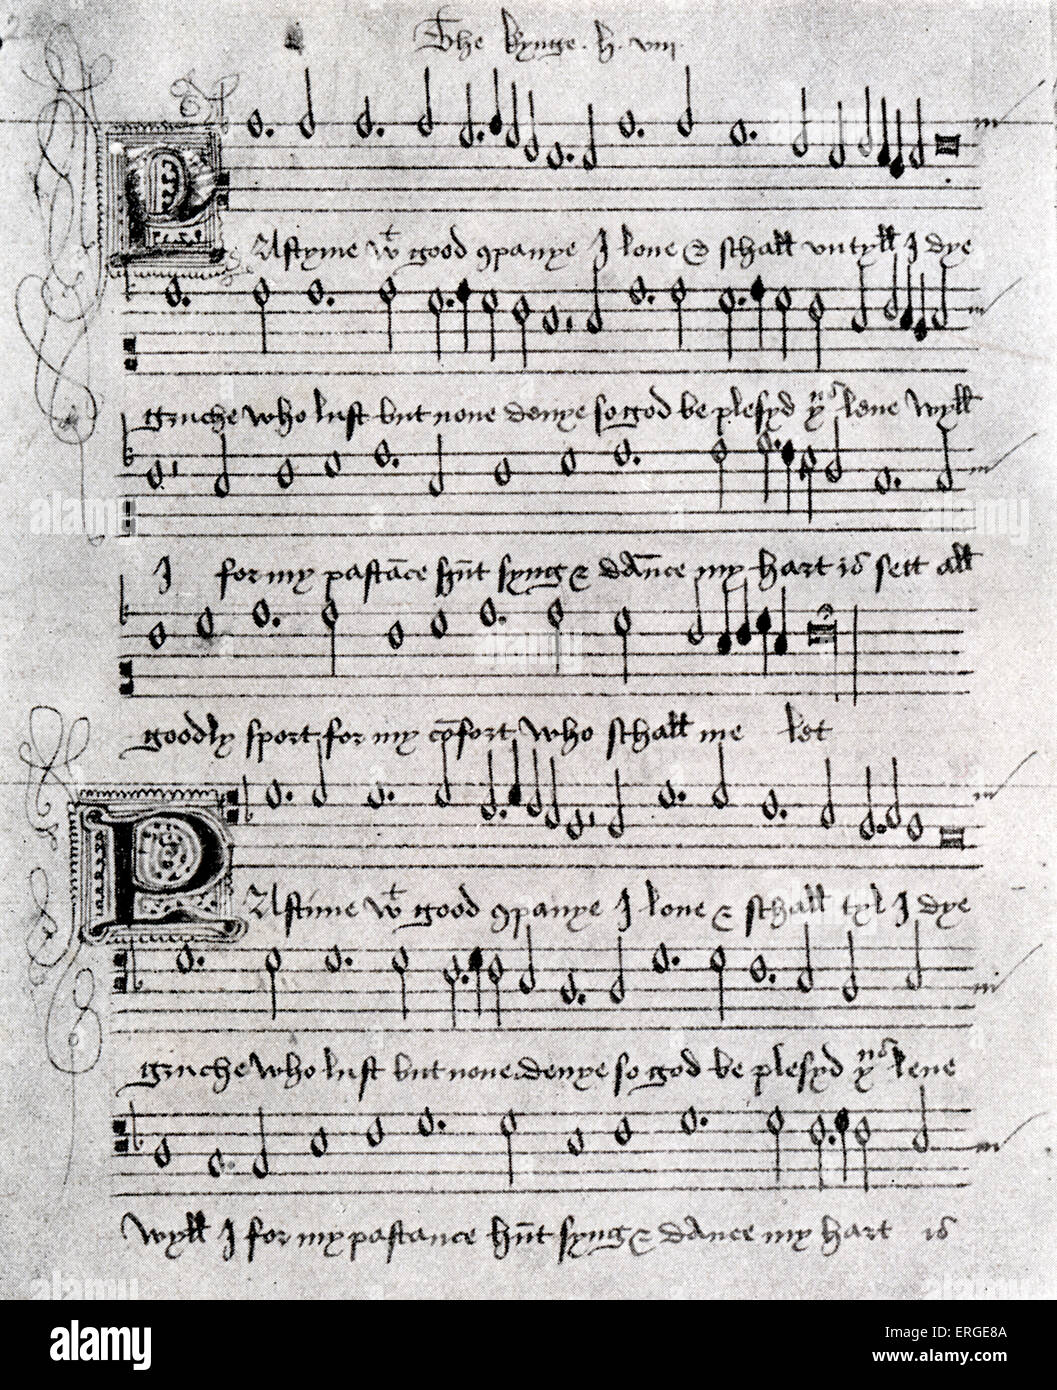 The kynge .h. viii.
PAstyme wt good 9panye I love & schall vntyll I dye
gruche who lust but none denye so god be plesyd yus leve wyll
I for my pastāce hūt syng & dānce my hart is sett all
goodly sport for my cōfort who schall me let
PAstime wt good 9panye I love & schall tyl I dye
gruche who lust but none denye so god be plesyd yus leve
wyll I for my pastance hūt syng & dance my hart is
alamy
ERGE8A
www.alamy.com